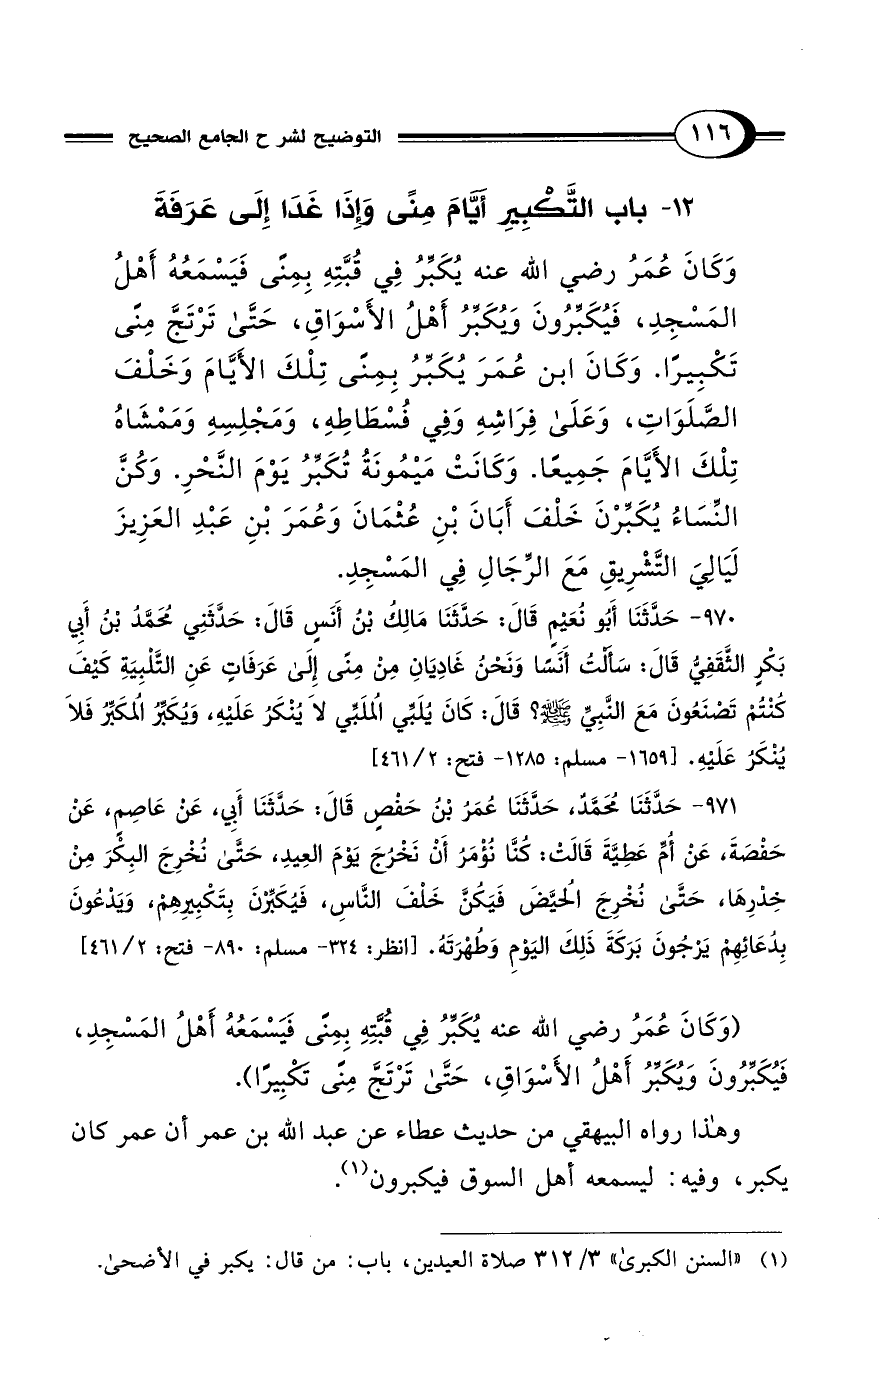 ١١٦ التوضيح لشرح الجامع الصحيح
١٢- باب التَّكْبِيرِ أَيَّامَ مِنًى وَإِذَا غَدَا إِلَى عَرَفَةَ
وَكَانَ عُمَرُ رضي الله عنه يُكَبِّرُ فِي قُبَّتِهِ بِمِنًى فَيَسْمَعُهُ أَهْلُ
المَسْجِدِ، فَيُكَبِّرُونَ وَيُكَبِّرُ أَهْلُ الأَسْوَاقِ، حَتَّىٰ تَرْتَجَّ مِنًى
تَكْبِيرًا. وَكَانَ ابن عُمَرَ يُكَبِّرُ بِمِنًى تِلْكَ الأَيَّامَ وَخَلْفَ
الصَّلَوَاتِ، وَعَلَىٰ فِرَاشِهِ وَفِي فُسْطَاطِهِ، وَمَجْلِسِهِ وَمَمْشَاهُ
تِلْكَ الأَيَّامَ جَمِيعًا. وَكَانَتْ مَيْمُونَةُ تُكَبِّرُ يَوْمَ النَّحْرِ. وَكُنَّ
النِّسَاءُ يُكَبِّرْنَ خَلْفَ أَبَانَ بْنِ عُثْمَانَ وَعُمَرَ بْنِ عَبْدِ العَزِيزِ
لَيَالِيَ التَّشْرِيقِ مَعَ الرِّجَالِ فِي المَسْجِدِ.
٩٧٠- حَدَّثَنَا أَبُو نُعَيْمٍ قَالَ: حَدَّثَنَا مَالِكُ بْنُ أَنَسٍ قَالَ: حَدَّثَنِي مُحَمَّدُ بْنُ أَبِي
بَكْرٍ الثَّقَفِيُّ قَالَ: سَأَلْتُ أَنَسًا وَنَحْنُ غَادِيَانِ مِنْ مِنًى إِلَىٰ عَرَفَاتٍ عَنِ التَّلْبِيَةِ كَيْفَ
كُنْتُمْ تَصْنَعُونَ مَعَ النَّبِيِّ ﷺ؟ قَالَ: كَانَ يُلَبِّي الْمُلَبِّي لاَ يُنْكَرُ عَلَيْهِ، وَيُكَبِّرُ الْمُكَبِّرُ فَلاَ
يُنْكَرُ عَلَيْهِ. [١٦٥٩- مسلم: ١٢٨٥- فتح: ٤٦١/٢]
٩٧١- حَدَّثَنَا مُحَمَّدٌ، حَدَّثَنَا عُمَرُ بْنُ حَفْصٍ قَالَ: حَدَّثَنَا أَبِي، عَنْ عَاصِمٍ، عَنْ
حَفْصَةَ، عَنْ أُمِّ عَطِيَّةَ قَالَتْ: كُنَّا نُؤْمَرُ أَنْ نَخْرُجَ يَوْمَ العِيدِ، حَتَّىٰ نُخْرِجَ البِكْرَ مِنْ
خِدْرِهَا، حَتَّىٰ نُخْرِجَ الْحُيَّضَ فَيَكُنَّ خَلْفَ النَّاسِ، فَيُكَبِّرْنَ بِتَكْبِيرِهِمْ، وَيَدْعُونَ
بِدُعَائِهِمْ يَرْجُونَ بَرَكَةَ ذَلِكَ اليَوْمِ وَطُهْرَتَهُ. [انظر: ٣٢٤- مسلم: ٨٩٠- فتح: ٤٦١/٢]
(وَكَانَ عُمَرُ رضي الله عنه يُكَبِّرُ فِي قُبَّتِهِ بِمِنًى فَيَسْمَعُهُ أَهْلُ المَسْجِدِ،
فَيُكَبِّرُونَ وَيُكَبِّرُ أَهْلُ الأَسْوَاقِ، حَتَّىٰ تَرْتَجَّ مِنًى تَكْبِيرًا).
وهذا رواه البيهقي من حديث عطاء عن عبد الله بن عمر أن عمر كان
يكبر، وفيه: ليسمعه أهل السوق فيكبرون(١).
(١) «السنن الكبرىٰ» ٣١٢/٣ صلاة العيدين، باب: من قال: يكبر في الأضحىٰ.